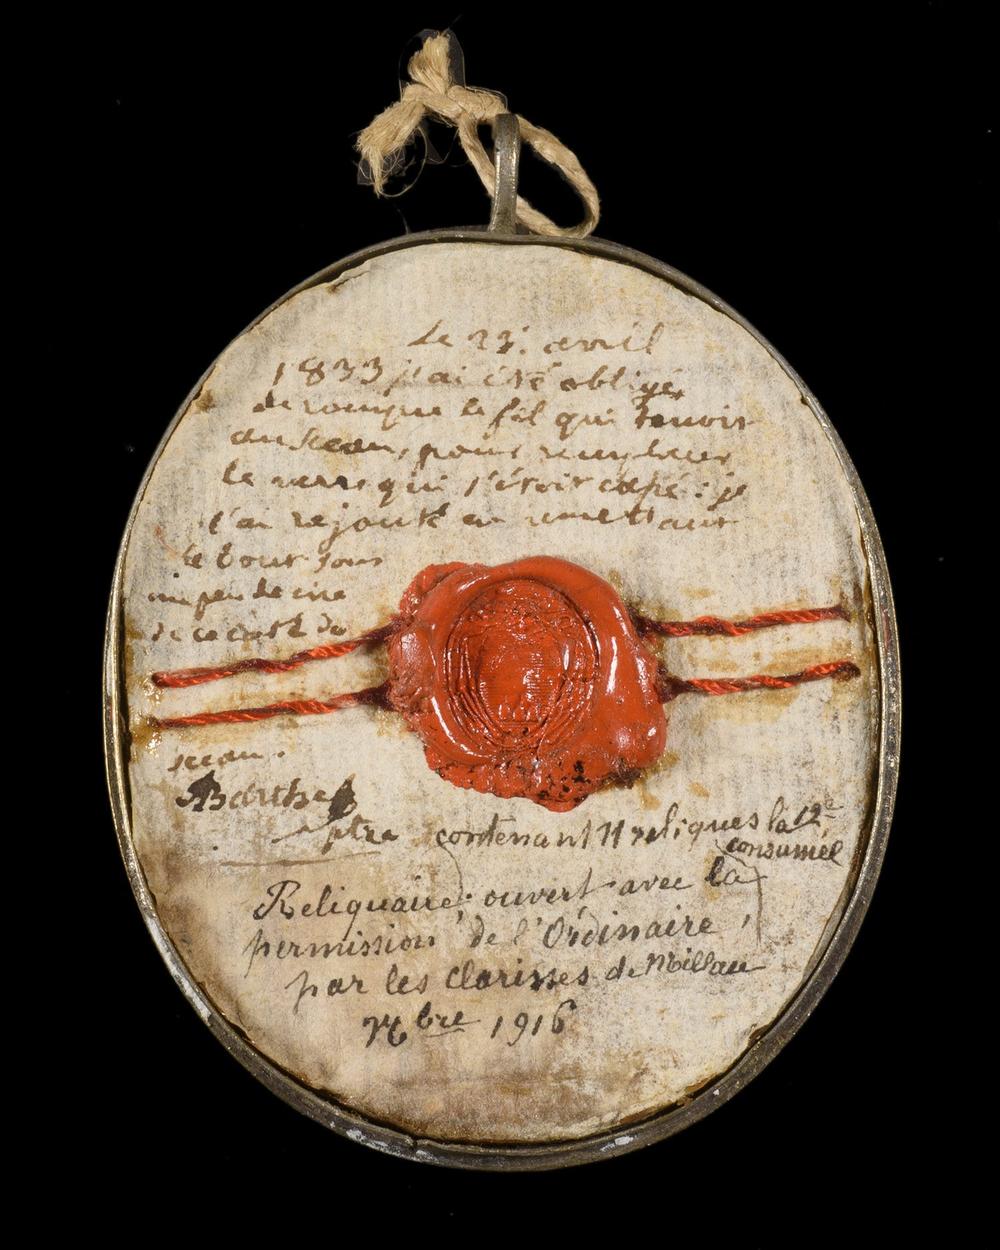 le 23. avril
1833 j'ai été obligé
de rompre le fil qui tenoit
au sceau, pour remplacer
le verre qui s'étoit cassé : je
l'ai rejouté en remettant
le bout sous
un peu de cire
de ce coté du
sceau.
Barthe
ptre
contenant 11 reliques la 12e
consumée
Reliquaire ouvert avec la
permission de l'Ordinaire,
par les Clarisses de Millau
bre 1916